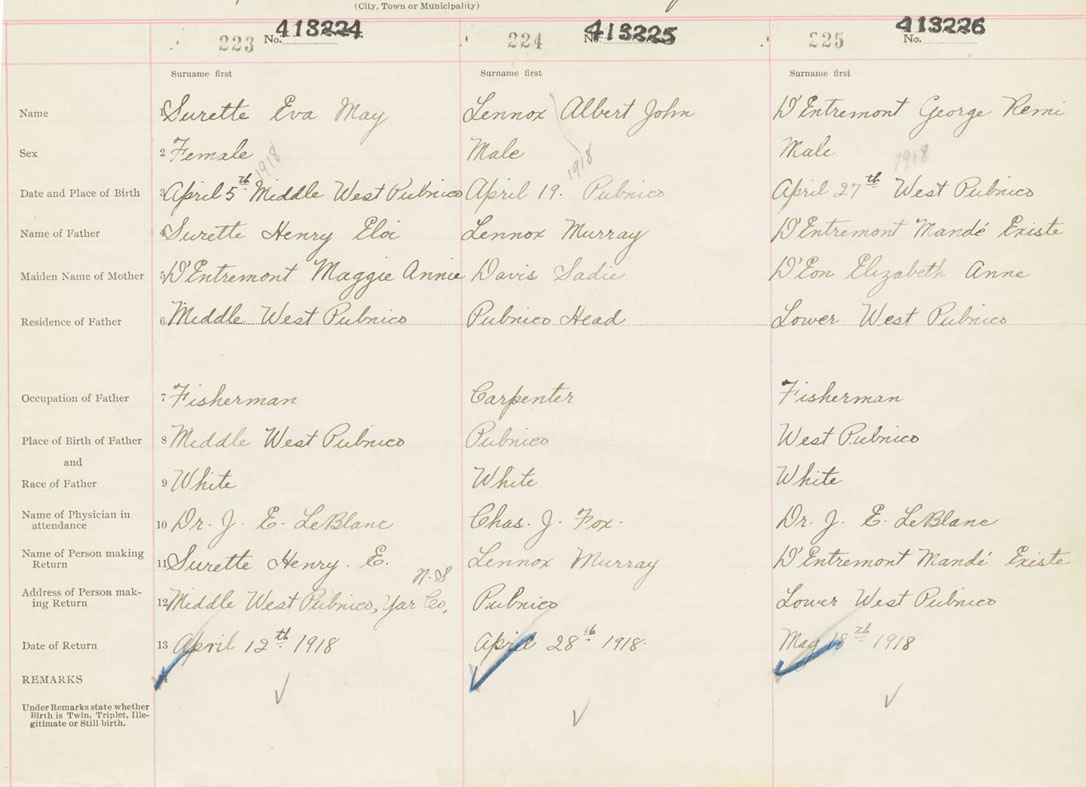 (City, Town or Municipality)
223 No. 413224
224 No. 413225
225 No. 413226
Surname first Surname first Surname first
Name 1 Surette Eva May Lennox Albert John D'Entremont George Remi
Sex 2 Female Male Male
1918 1918 1918
Date and Place of Birth 3 April 5th Middle West Pubnico April 19. Pubnico April 27th West Pubnico
Name of Father 4 Surette Henry Eloi Lennox Murray D'Entremont Mandé Existe
Maiden Name of Mother 5 D'Entremont Maggie Annie Davis Sadie D'Eon Elizabeth Anne
Residence of Father 6 Middle West Pubnico Pubnico Head Lower West Pubnico
Occupation of Father 7 Fisherman Carpenter Fisherman
Place of Birth of Father 8 Middle West Pubnico Pubnico West Pubnico
and
Race of Father 9 White White White
Name of Physician in
attendance 10 Dr. J. E. LeBlanc Chas. J. Fox. Dr. J. E. LeBlanc
Name of Person making
Return 11 Surette Henry. E. Lennox Murray D'Entremont Mandé Existe
N.S
Address of Person mak-
ing Return 12 Middle West Pubnico, Yar Co, Pubnico Lower West Pubnico
Date of Return 13 April 12th 1918 April 28th 1918. May 18th 1918
REMARKS
Under Remarks state whether
Birth is Twin, Triplet, Ille-
gitimate or Still birth.